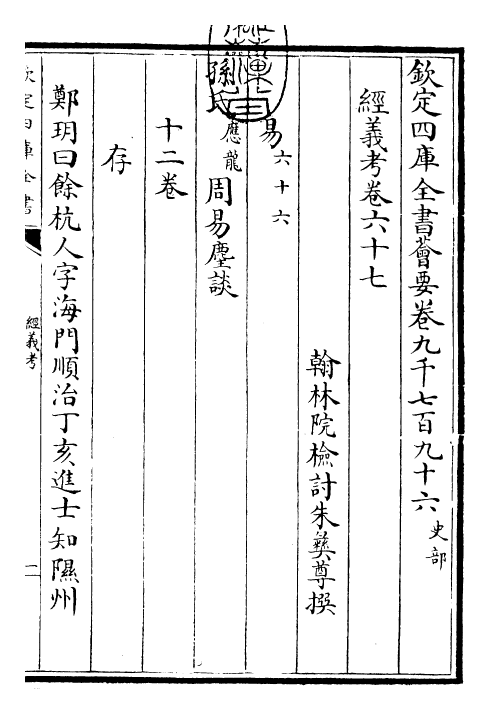 欽定四庫全書薈要卷九千七百九十六 史部
經義考卷六十七
翰林院檢討朱彝尊撰
易 六十六
孫氏 應龍 周易塵談
十二卷
存
鄭玥曰餘杭人字海門順治丁亥進士知隰州
欽定四庫全書
經義考